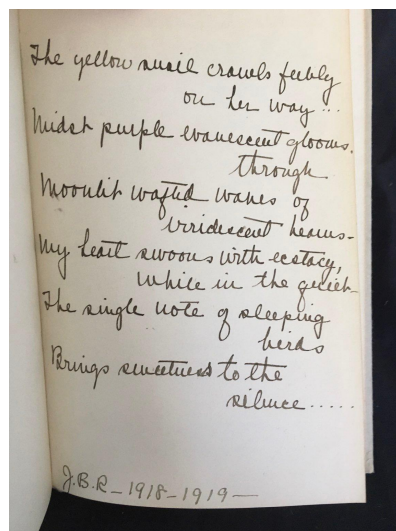 The yellow snail crawls feebly
on her way...
Midst purple evanescent glooms.
through
Moonlit wafted waves of
viridescent beams-
My heart swoons with ecstacy,
While in the quiet-
The single note of sleeping
birds
Brings sweetness to the
silence.....
J.B.R-1918-1919-